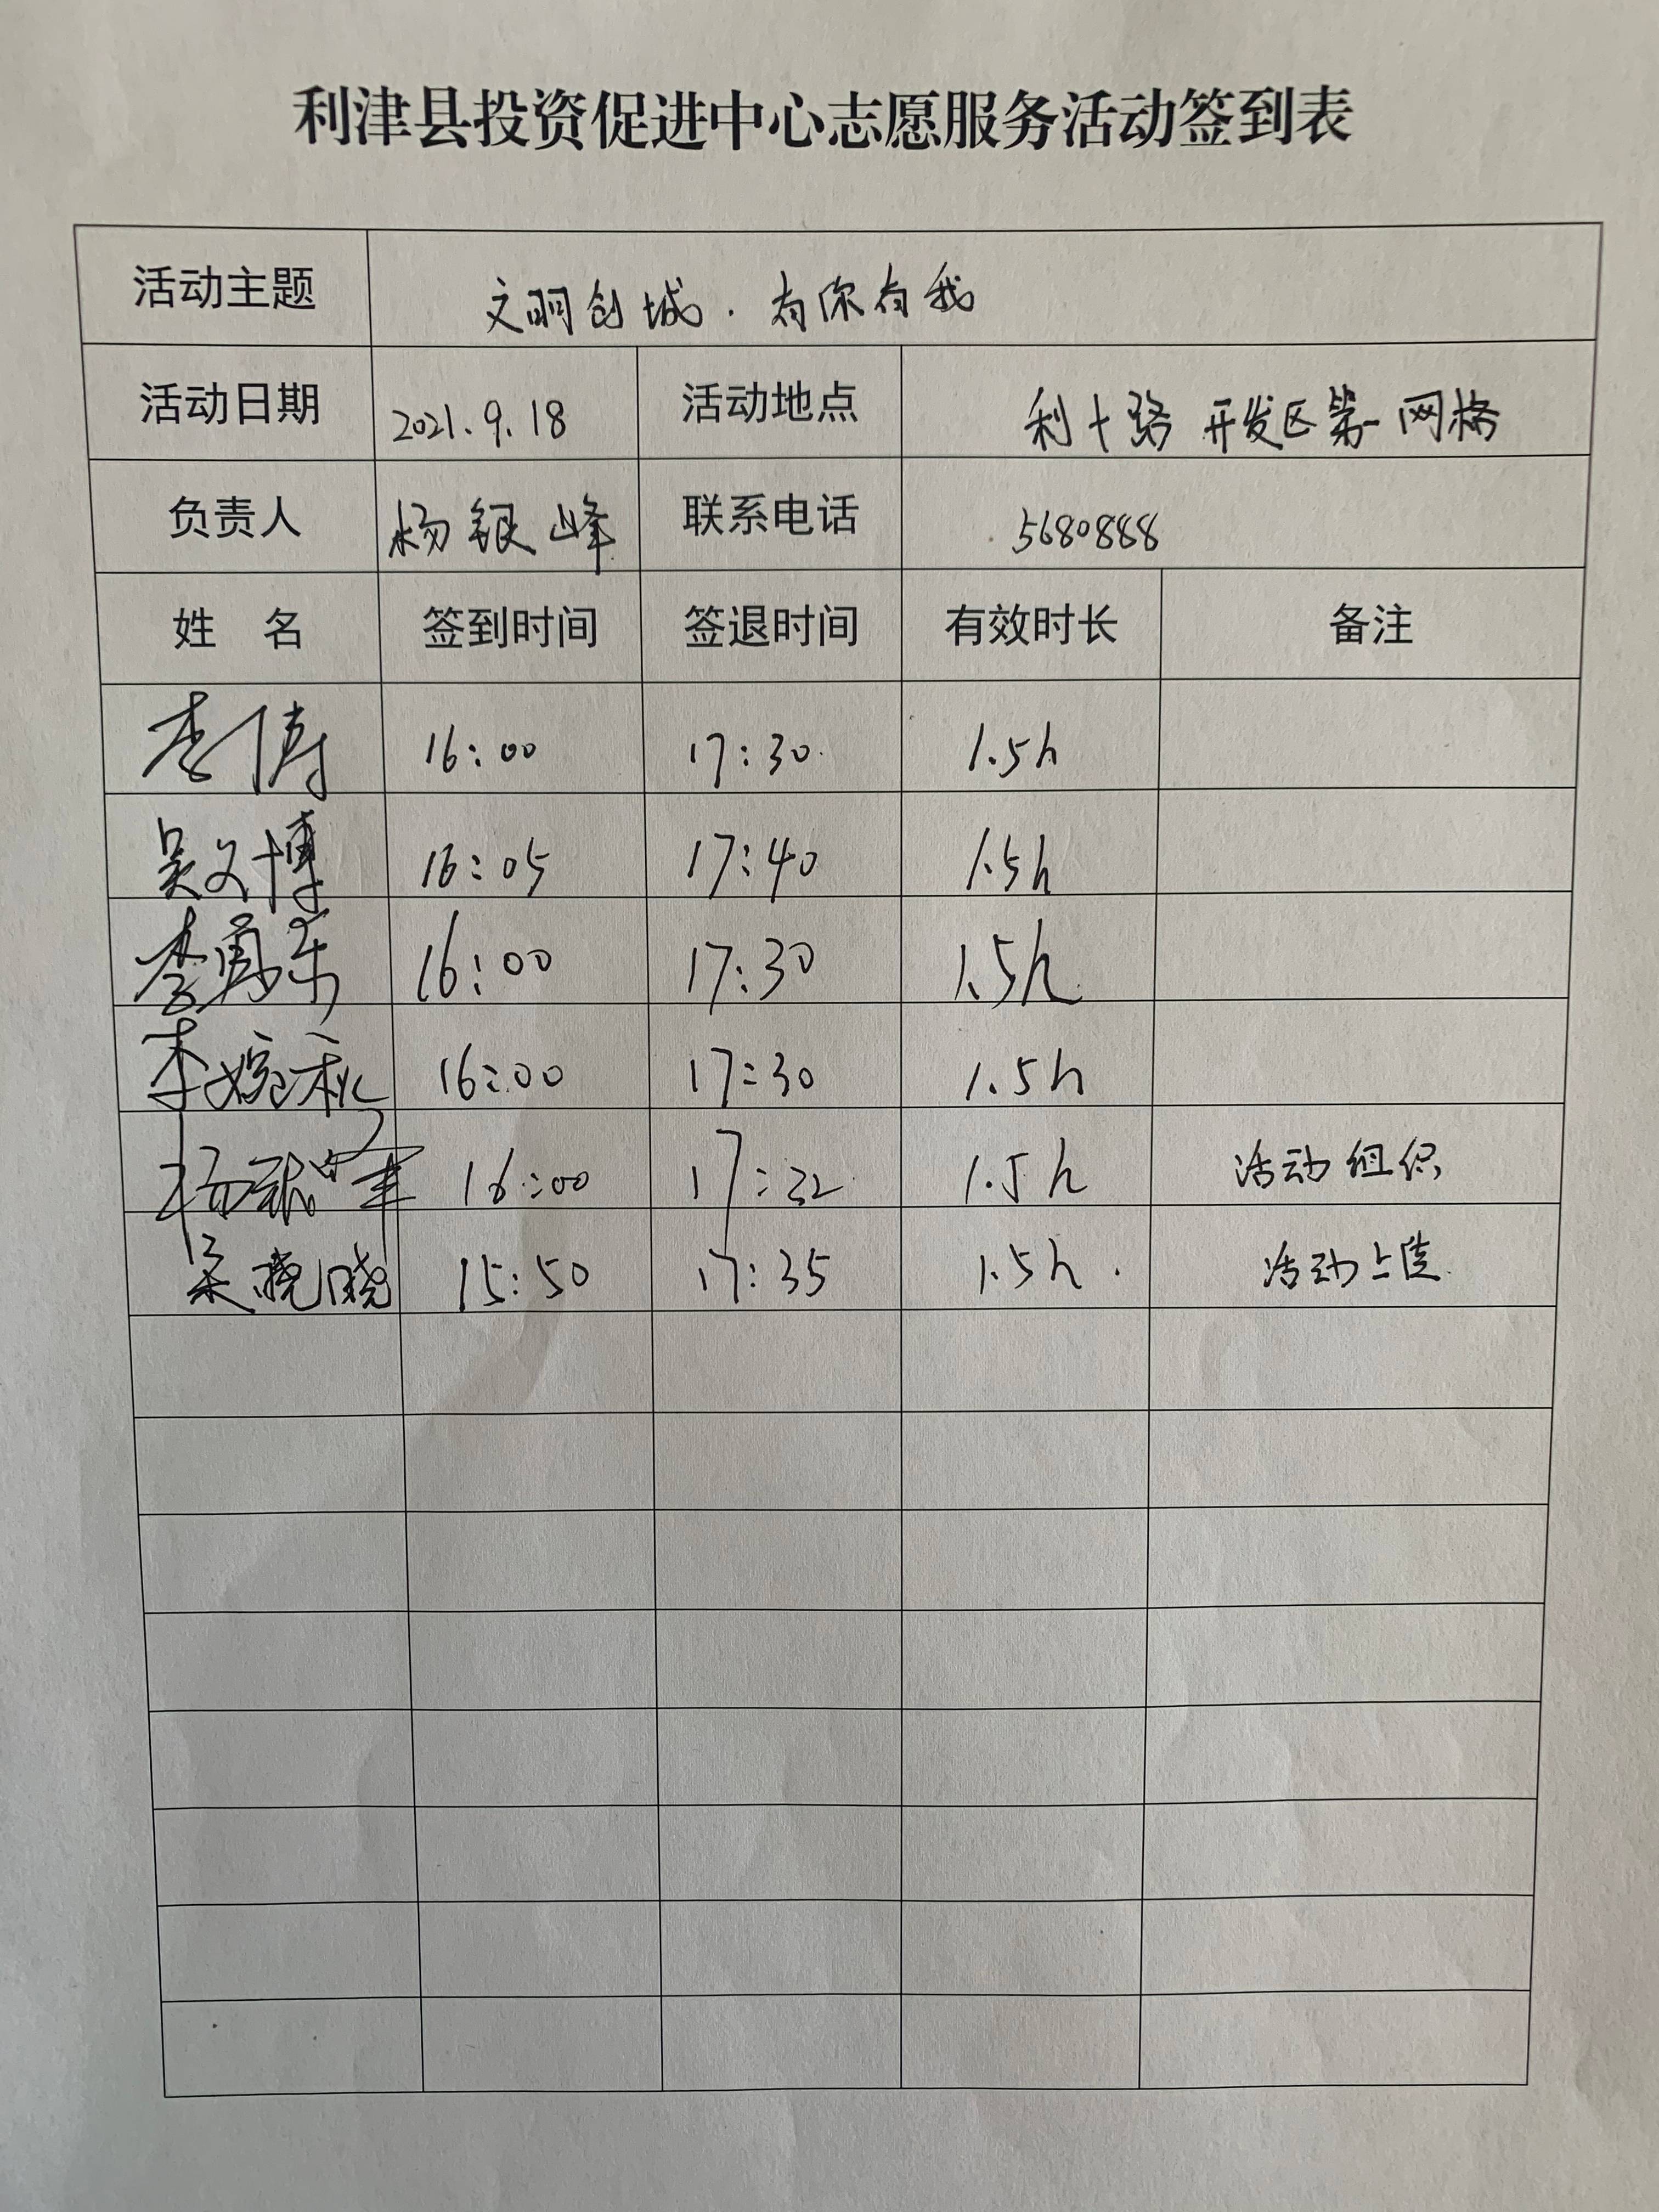 利津县投资促进中心志愿服务活动签到表
活动主题 文明创城.有你有我
活动日期 2021.9.18 活动地点 利十路 开发区第一网格
负责人 杨银峰 联系电话 5680888
姓 名 签到时间 签退时间 有效时长 备注
李 16:00 17:30 1.5h
吴文博 16:05 17:40 1.5h
李勇乐 16:00 17:30 1.5h
李婉秋 16:00 17:30 1.5h
杨银峰 16:00 17:32 1.5h 活动组织
晓 15:50 17:35 1.5h. 活动上传